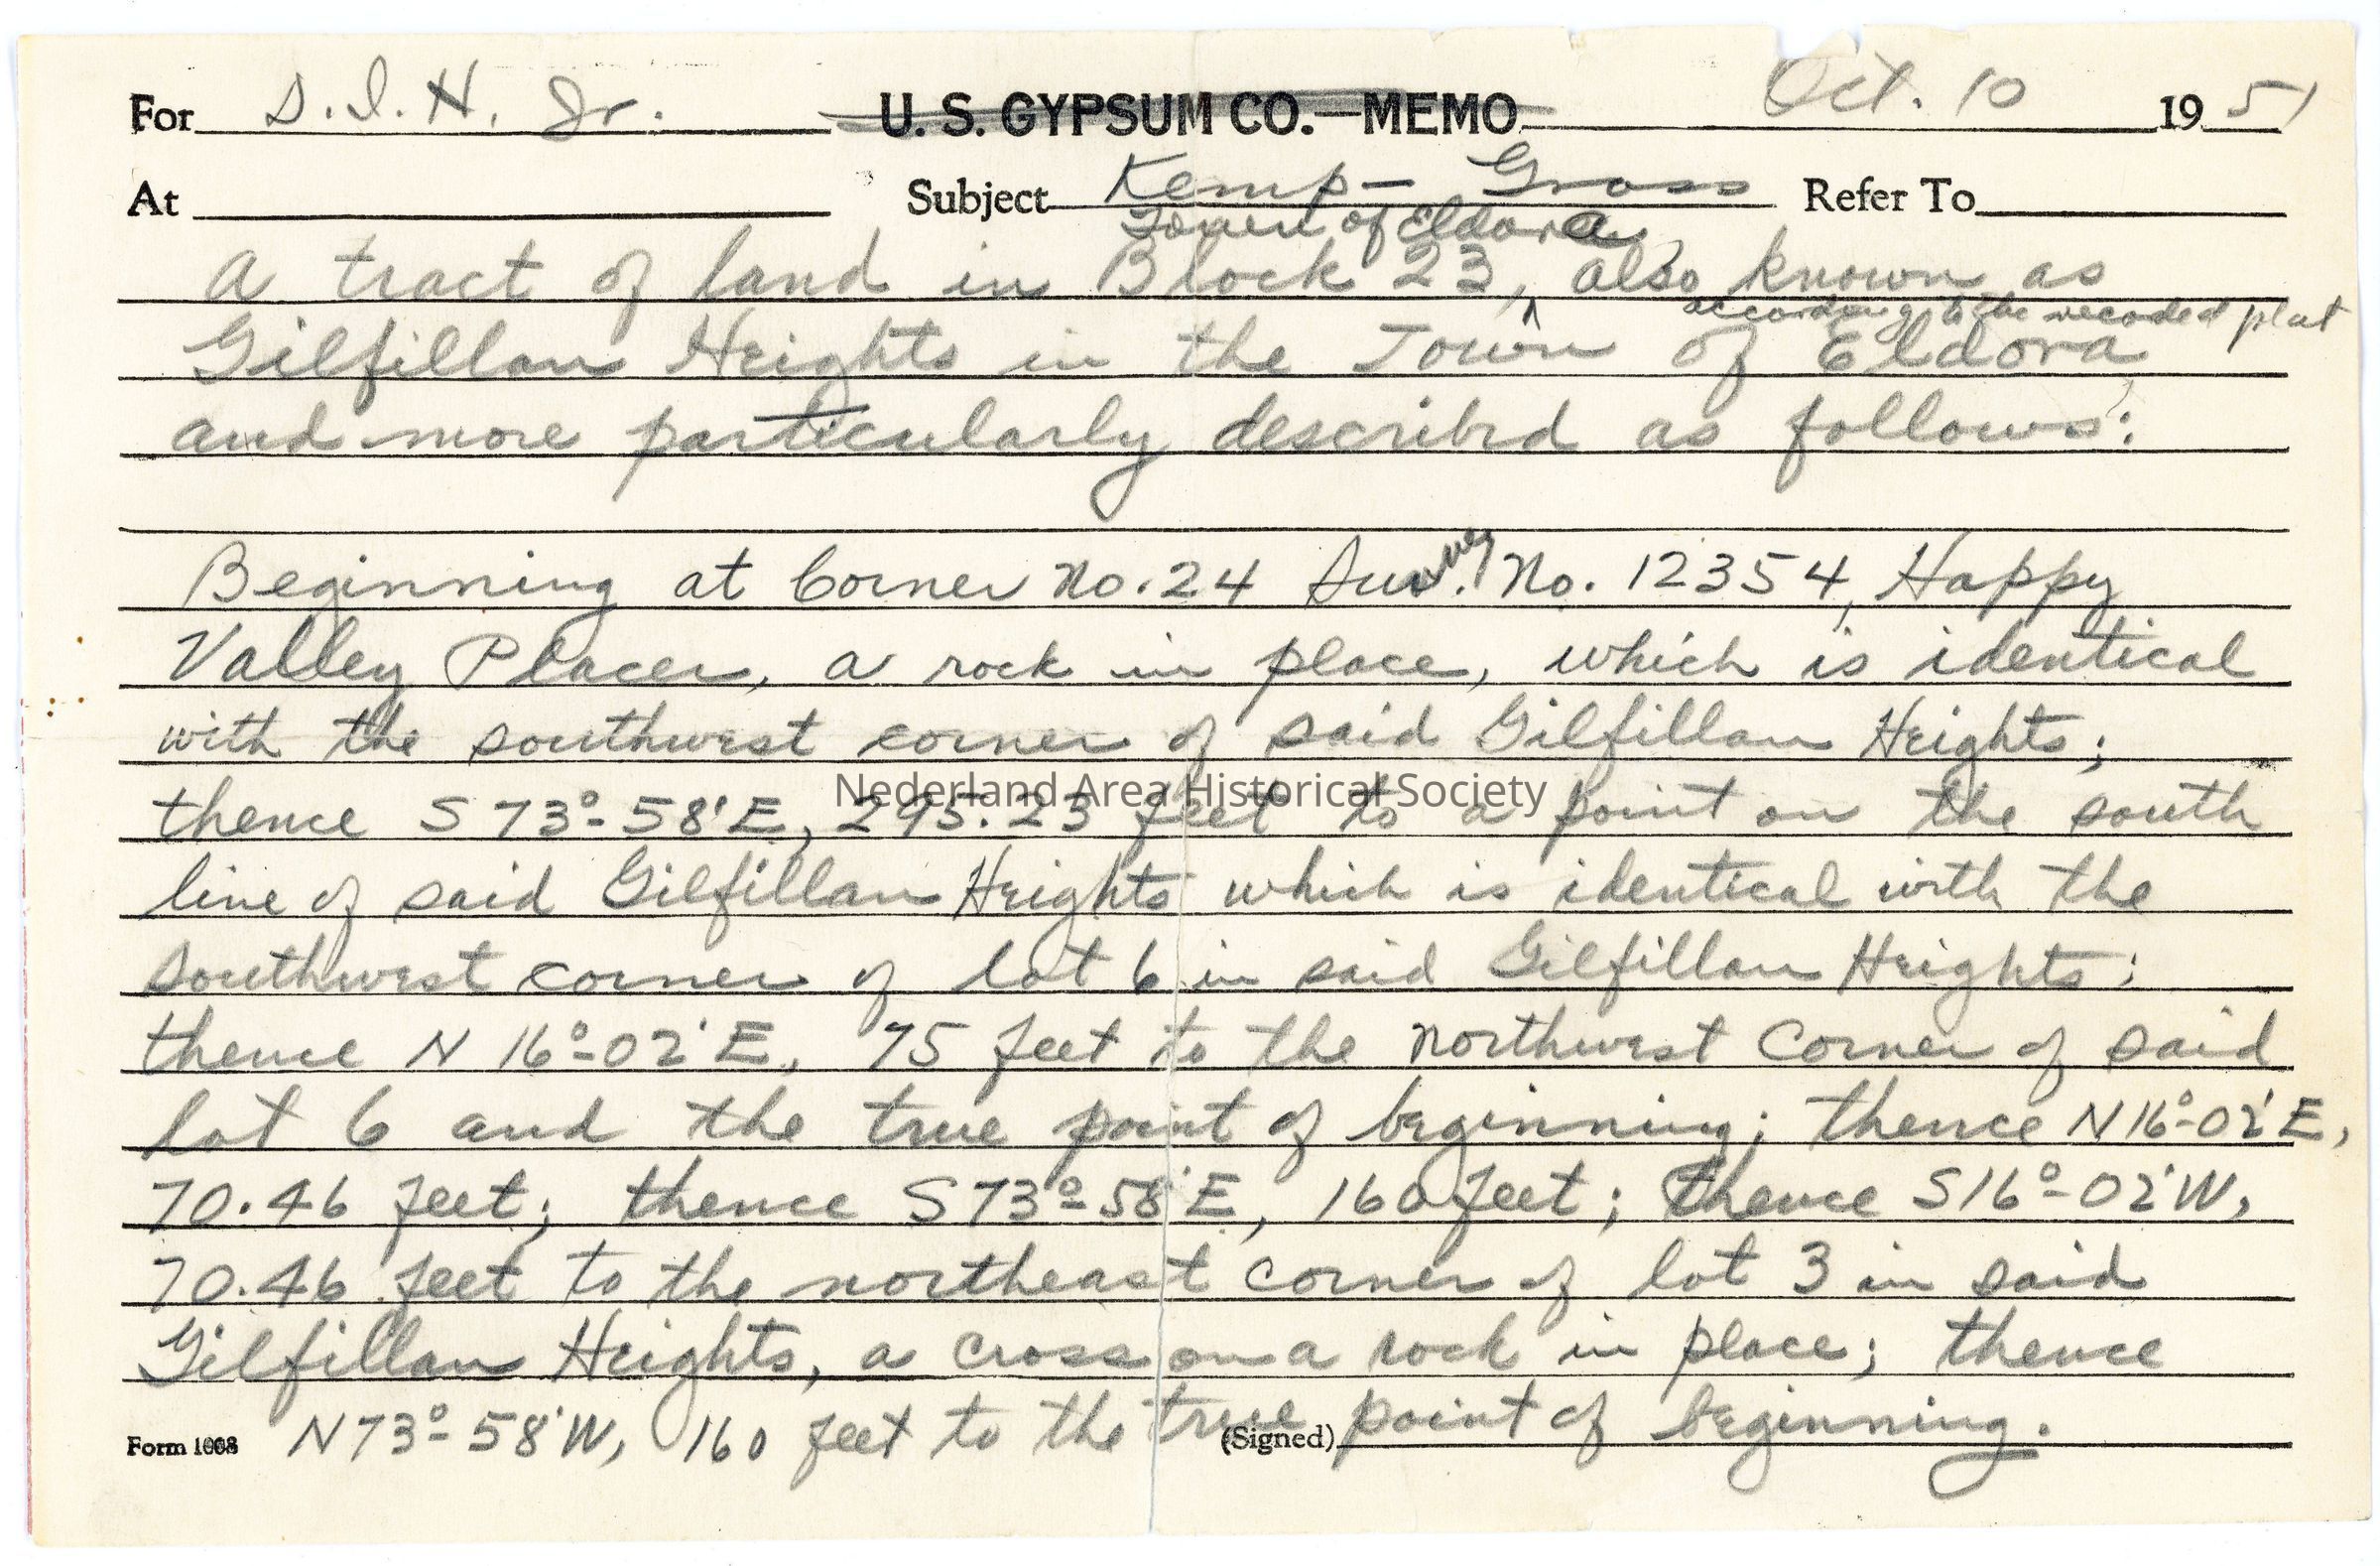 For D. I. H. Jr. U. S. GYPSUM CO.—MEMO Oct. 10 1951
At Subject Kemp - Gross Refer To
Town of Eldora
A tract of land in Block 23, ^ also known as
according to the recorded plat
Gilfillan Heights in the Town of Eldora,
and more particularly described as follows:
Beginning at Corner No. 24 Survey No. 12354, Happy
Valley Placer, a rock in place, which is identical
with the southwest corner of said Gilfillan Heights;
Nederland Area Historical Society
thence S 73°-58'E, 295.23 feet to a point on the south
line of said Gilfillan Heights which is identical with the
southwest corner of lot 6 in said Gilfillan Heights;
thence N 16°-02'E, 75 feet to the northwest corner of said
lot 6 and the true point of beginning; thence N 16°-02'E,
70.46 feet; thence S 73°-58'E, 160 feet; thence S 16°-02'W,
70.46 feet to the northeast corner of lot 3 in said
Gilfillan Heights, a cross on a rock in place; thence
N 73°-58'W, 160 feet to the true point of beginning.
Form 1008 (Signed)